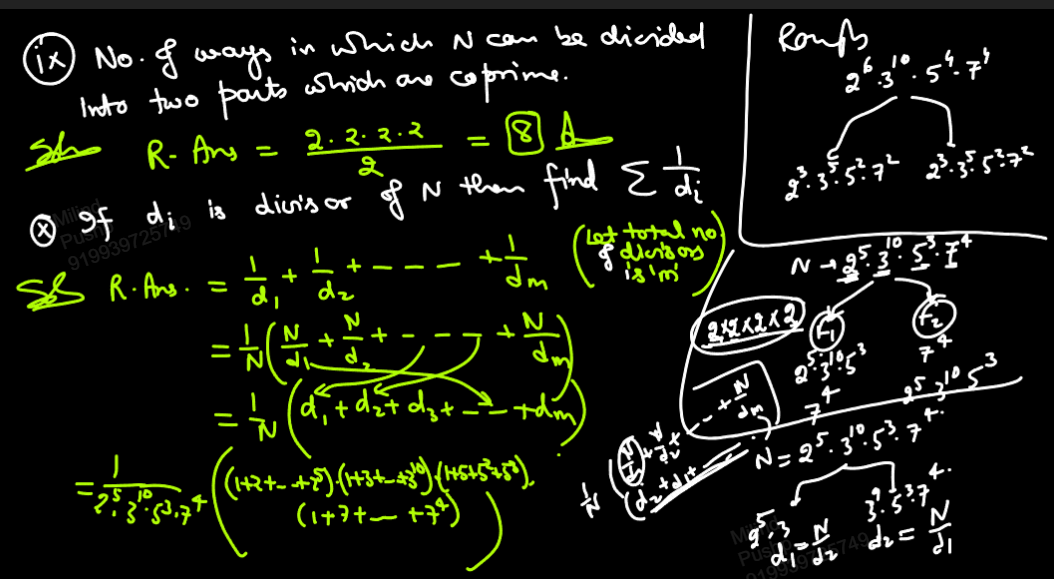 (ix) No. of ways in which N can be divided
into two parts which are coprime.
Soln R. Ans = 2.2.2.2 / 2 = 8 A
(x) If di is divisor of N then find Σ 1/di
Soln R. Ans. = 1/d1 + 1/d2 + ---- + 1/dm (Let total no of divisors is 'm')
= 1/N (N/d1 + N/d2 + - - - + N/dm)
= 1/N (d1 + d2 + d3 + -- + dm)
= 1/2^5.3^10.5^3.7^4 ((1+2+-+2^5).(1+3+-+3^10).(1+5+5^2+5^3).
(1+7+-+7^4))
Rough
2^6.3^10.5^4.7^4
2^3.3^5.5^2.7^2 2^3.3^5.5^2.7^2
N → 2^5.3^10.5^3.7^4
2×2×2×2 F1 F2
2^5.3^10.5^3 7^4
7^4 2^5.3^10 5^3
N = 2^5.3^10.5^3.7^4.
2^5.3 3^9.5^3.7^4.
d1 = N/d2 d2 = N/d1
1/N
Milind
Pushp
919939725749